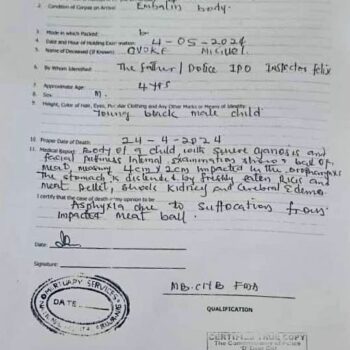 2. Condition of Corpse on Arrival Embalm body.
3. Made in which Packed: b
4. Date and Hour of Holding Examination: 4-05-2024
5. Name of Deceased (if Known) OVOKE
6. By Whom Identified The father / Police IPO Inspector felix
7. Approximate Age: 4yrs
8. Sex M.
9. Height, Color of Hair, Eyes, Peculiar Clothing and Any Other Marks or Means of Identity:
Young black male child
10. Proper Date of Death: 24-4-2024
11. Medical Report: Body of a child with severe cyanosis and
facial puffiness Internal examination shows ball of
meat, measuring 4cm x 2cm impacted in the oropharynx
The stomach is distended by freshly eaten Rice and
meat Pellet, Shock kidney and cerebral Edema
I certify that the case of death in my opinion to be:
Asphyxia due to suffocation from
Impacted meat ball.
Date:
Signature:
MB.CHB
QUALIFICATION
MORTUARY SERVICES
DATE
CERTIFIED TRUE COPY
The Commissioner of Police